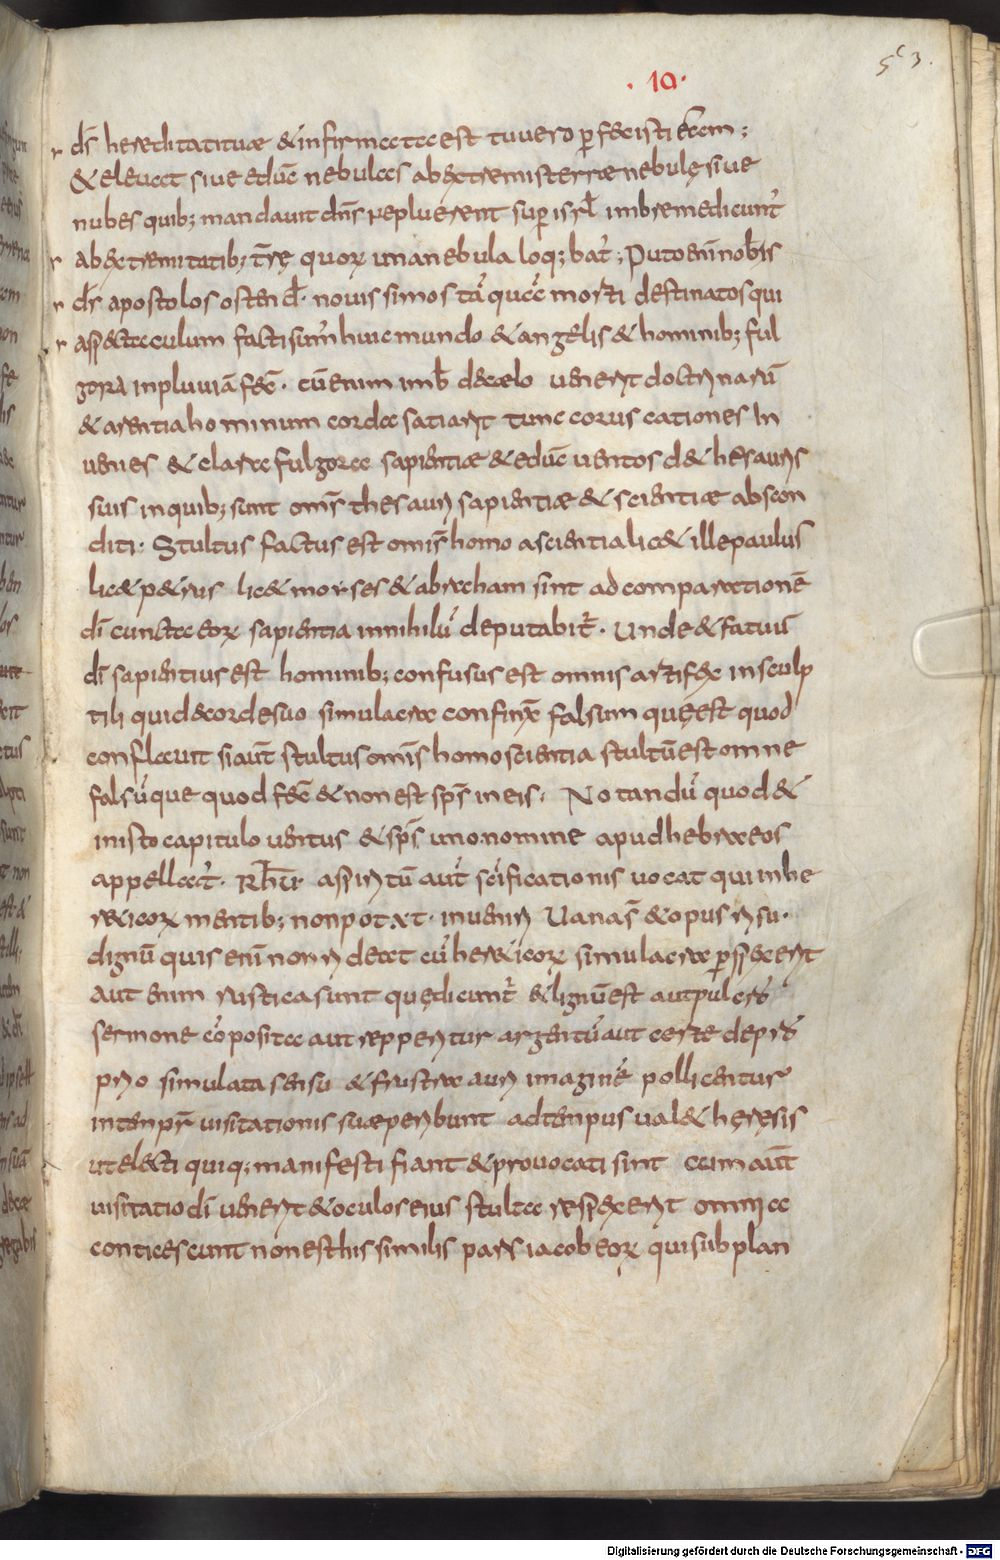 53.
· 10 ·
ds̄ hereditati tuae & infirmata est tu uero ꝑfecisti eam;
& eleuat siue educ̄ nebulas ab extremis terrae nebulę siue
nubes quib; mandauit dn̄s ne pluerent sup̄ isrl̄ imbrem edicunt̉
ab extremitatib; t̄rę quorꝝ una nebula loq;bat̉; Puto enī nobis
ds̄ apostolos ostend̄· nouissimos tā quā morti destinatos qui
a spectaculum facti sum̉ huic mundo & angelis & hominib; ful
gora in pluuiā fec̄· cū enim imb̄ de caelo uenerit doctrinarū
& arentia hominum corda satiarit tunc coruscationes in
uenies & clara fulgora sapientiae & educ̄ uentos de thesauris
suis in quib; sunt om̄s thesauri sapientiae & scientiae abscon
diti· Stultus factus est omīs homo a scientia lic& ille paulus
lic& p&rus lic& moyses & abraham sint ad comparationē
dī cuncta eorꝝ sapientia in nihilū deputabit̉· Unde & fatuū
dī sapientius est hominib; confusus est omnis artifex in sculp
tili quid & corde suo simulacra confinx̄ falsum quę est quod
conflauit si aut̄ stultus omīs homo scientia stultū est omne
falsūque quod fec̄ & non est sp̄s in eis· Notandū quod &
in isto capitulo uentus & sp̄s uno nomine apud hebraeos
appellat̉· Rūh̄ aspiritū aut̄ scīficationis uocat qui in he
reticorꝝ mentib; non potxt· inueniri Uana s̄ & opus risu·
dignū quis enī non rideat cū hereticorꝝ simulacra ꝑspexerit
aut enim rustica sunt quę dicunt̉ & lignū est aut pulcro
sermone cōposita aut repperitur argentū aut certe de pro
prio simulata sensu & frustra auri imaginē pollicentur
in tenpr̄ uisitationis suae peribunt ad tenpus ual& heręsis
ut electi quiq; manifesti fiant & prouocati sint cum aut̄
uisitatio dī uenerit & oculos eius stulta respexerit omnia
conticescunt non est his similis pars iacob eorꝝ qui sub plan
Digitalisierung gefördert durch die Deutsche Forschungsgemeinschaft - DFG